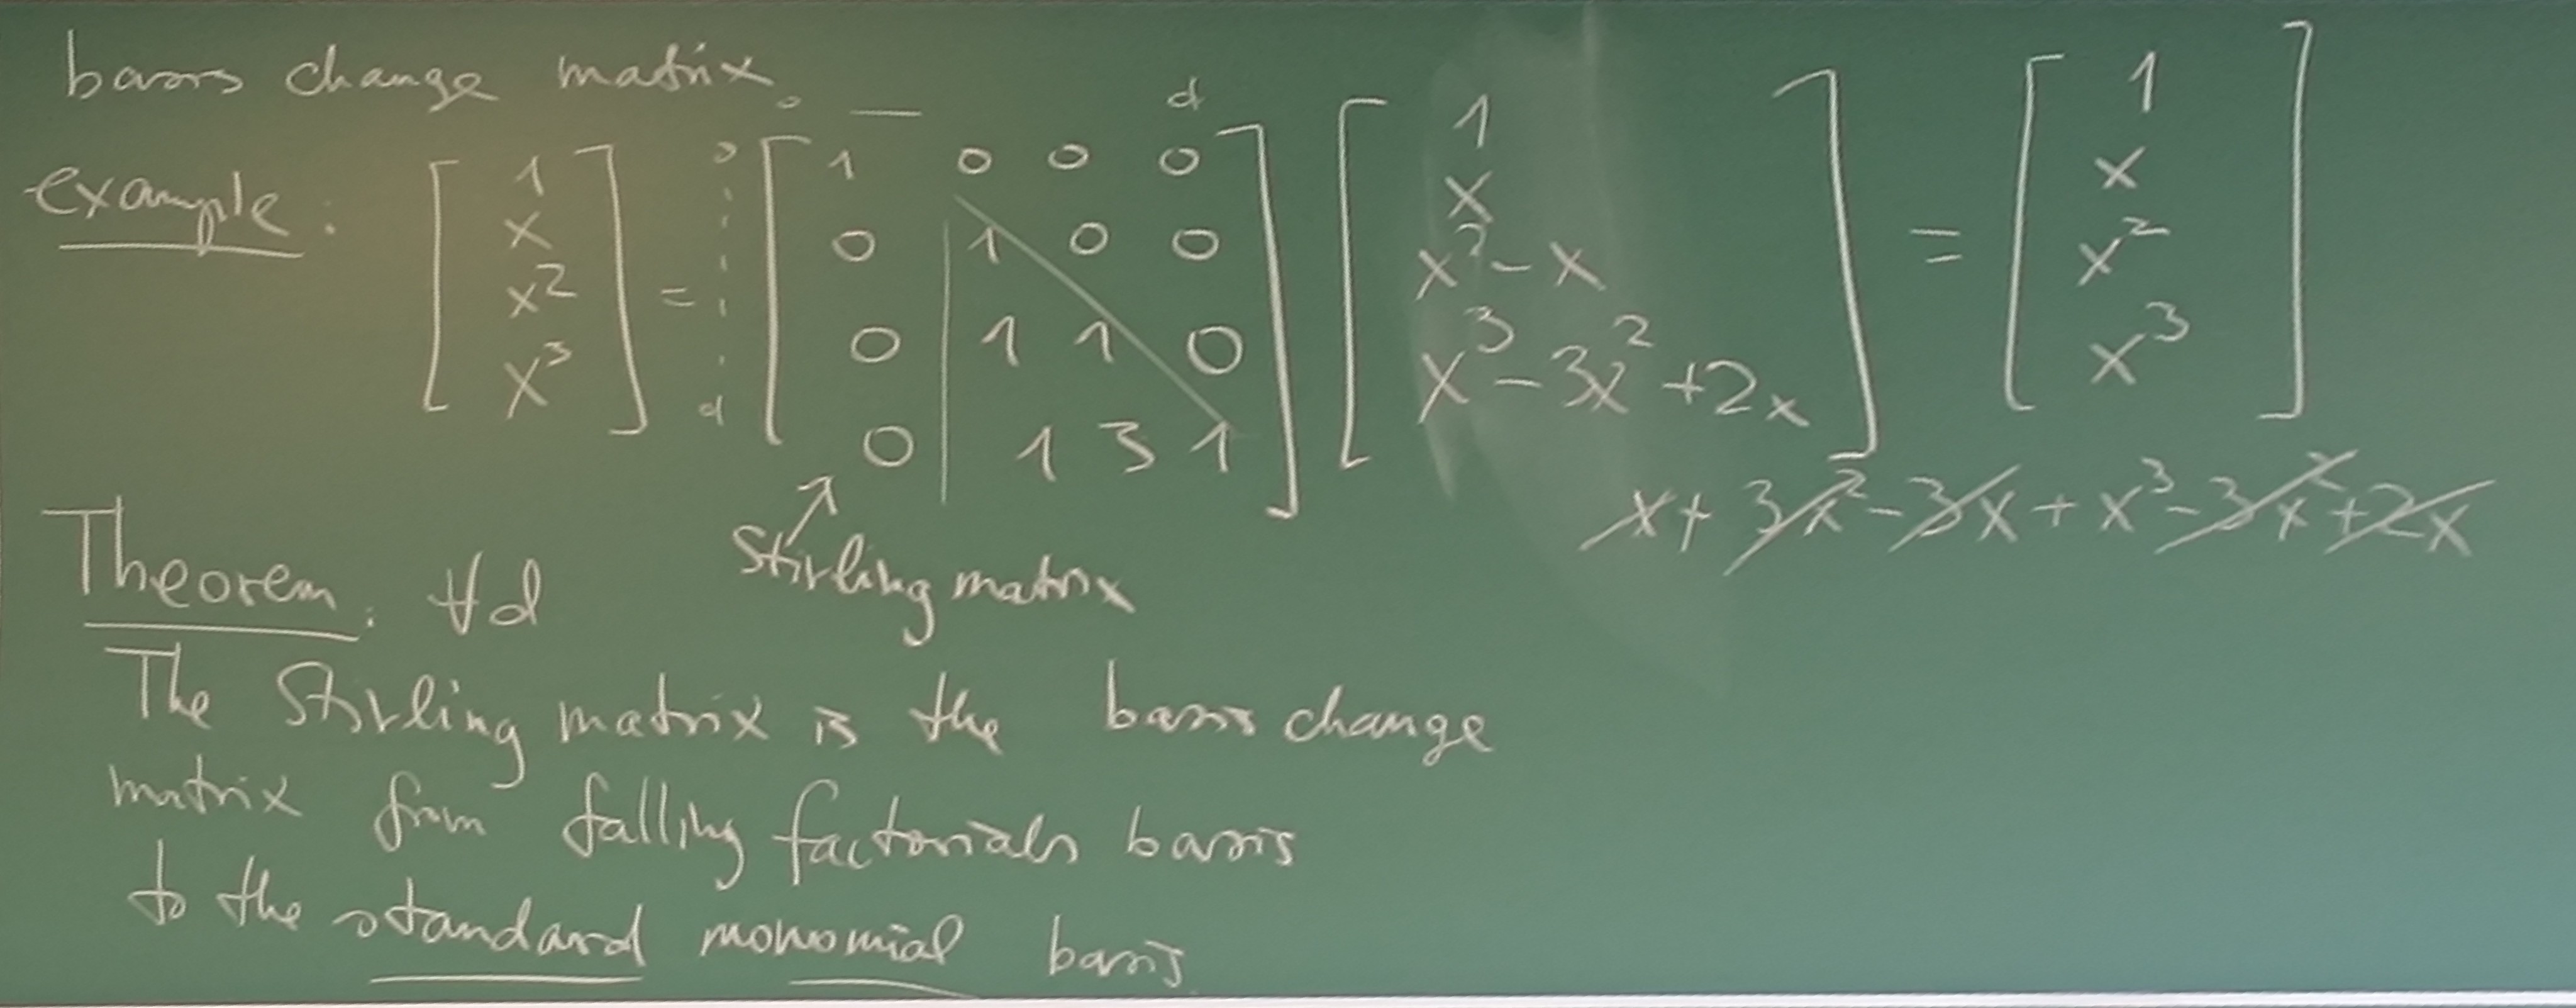 basis change matrix.
0 — d
example: [ 1 x x² x³ ] = 0 ⋮ d [ 1 0 0 0 ; 0 1 0 0 ; 0 1 1 0 ; 0 1 3 1 ] [ 1 x x²-x x³-3x²+2x ] = [ 1 x x² x³ ]
x + 3x² - 3x + x³ - 3x² + 2x
Stirling matrix
Theorem: ∀d
The Stirling matrix is the basis change
matrix from falling factorials basis
to the standard monomial basis